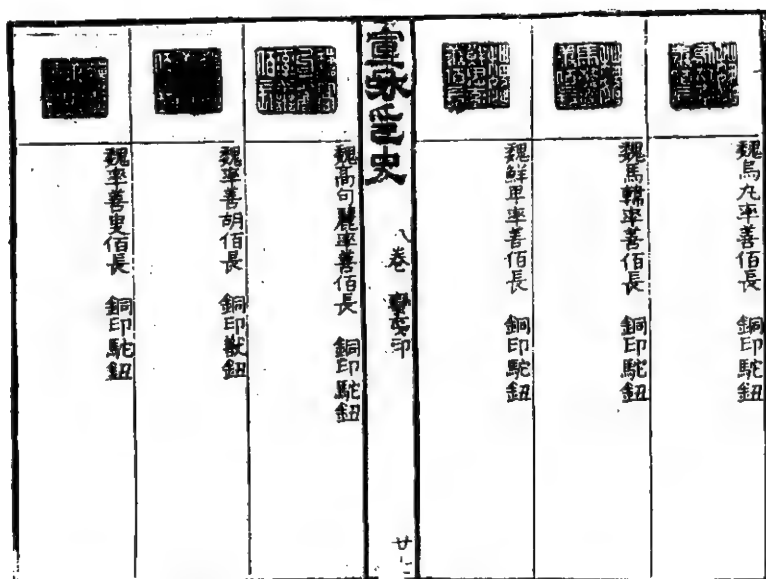 魏烏丸率善佰長　銅印駝鈕
魏馬韓率善佰長　銅印駝鈕
魏鮮卑率善佰長　銅印駝鈕
宣和印史
八卷　蠻夷印
魏高句麗率善佰長　銅印駝鈕
魏率善胡佰長　銅印獸鈕
魏率善叟佰長　銅印駝鈕